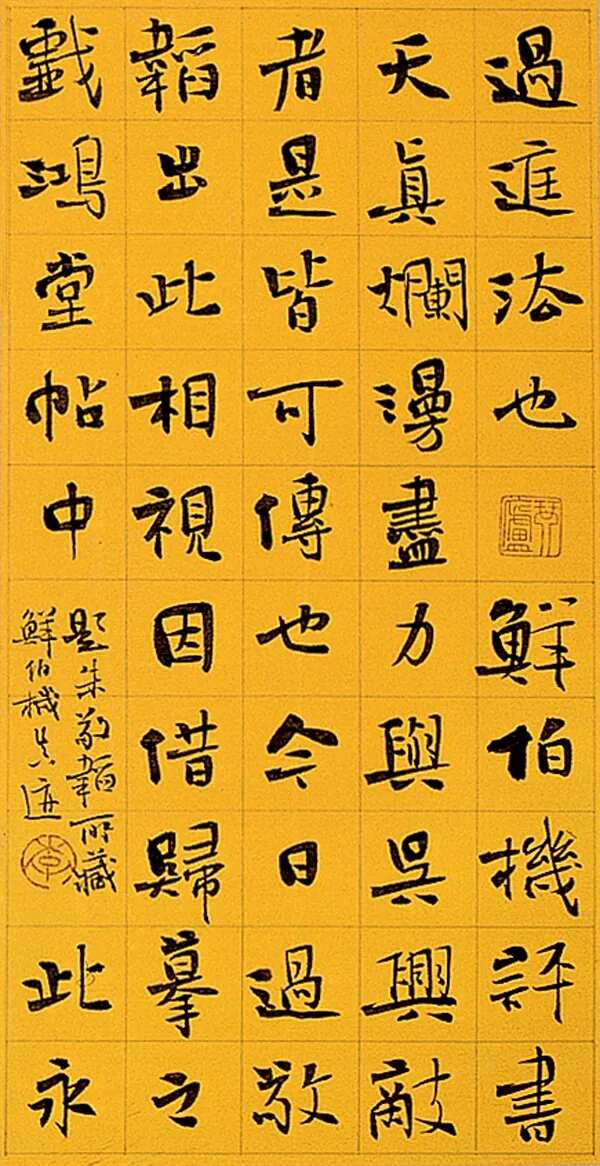 過法也
鮮伯機評書
天眞爛漫盡力與吳興敵
者是皆可傳也今日過敬
韜出此相視因借歸摹之
戲鴻堂帖中
題朱敬韜所藏
鮮伯機真迹
此永